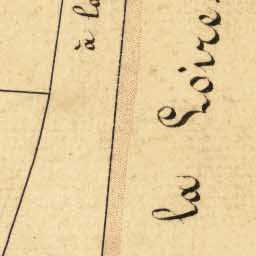 à la
la Loire